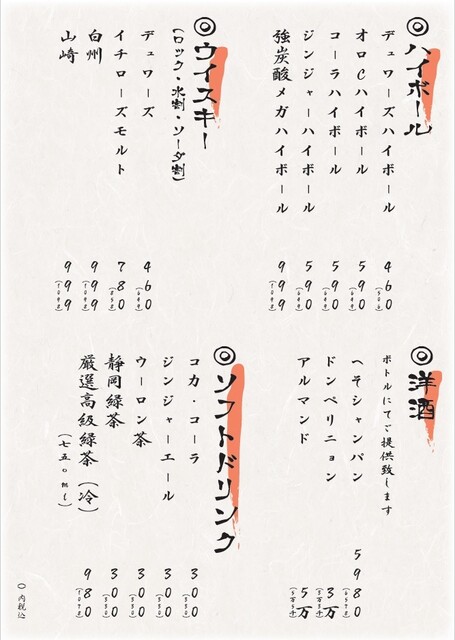 ◎ハイボール
デュワーズハイボール 460
オロCハイボール 590
コーラハイボール 590
ジンジャーハイボール 590
強炭酸メガハイボール 999
◎ウイスキー
(ロック・水割・ソーダ割)
デュワーズ 460
イチローズモルト 780
白州 999
山崎 999
◎洋酒
ボトルにてご提供致します
ヘネシャンパン 5980
ドンペリニョン 3万
アルマンド 5万
◎ソフトドリンク
コカ・コーラ 300 (330)
ジンジャーエール 300 (330)
ウーロン茶 300 (330)
静岡緑茶 300 (330)
厳選高級緑茶(冷) 980
(七五〇ml)
() 内税込